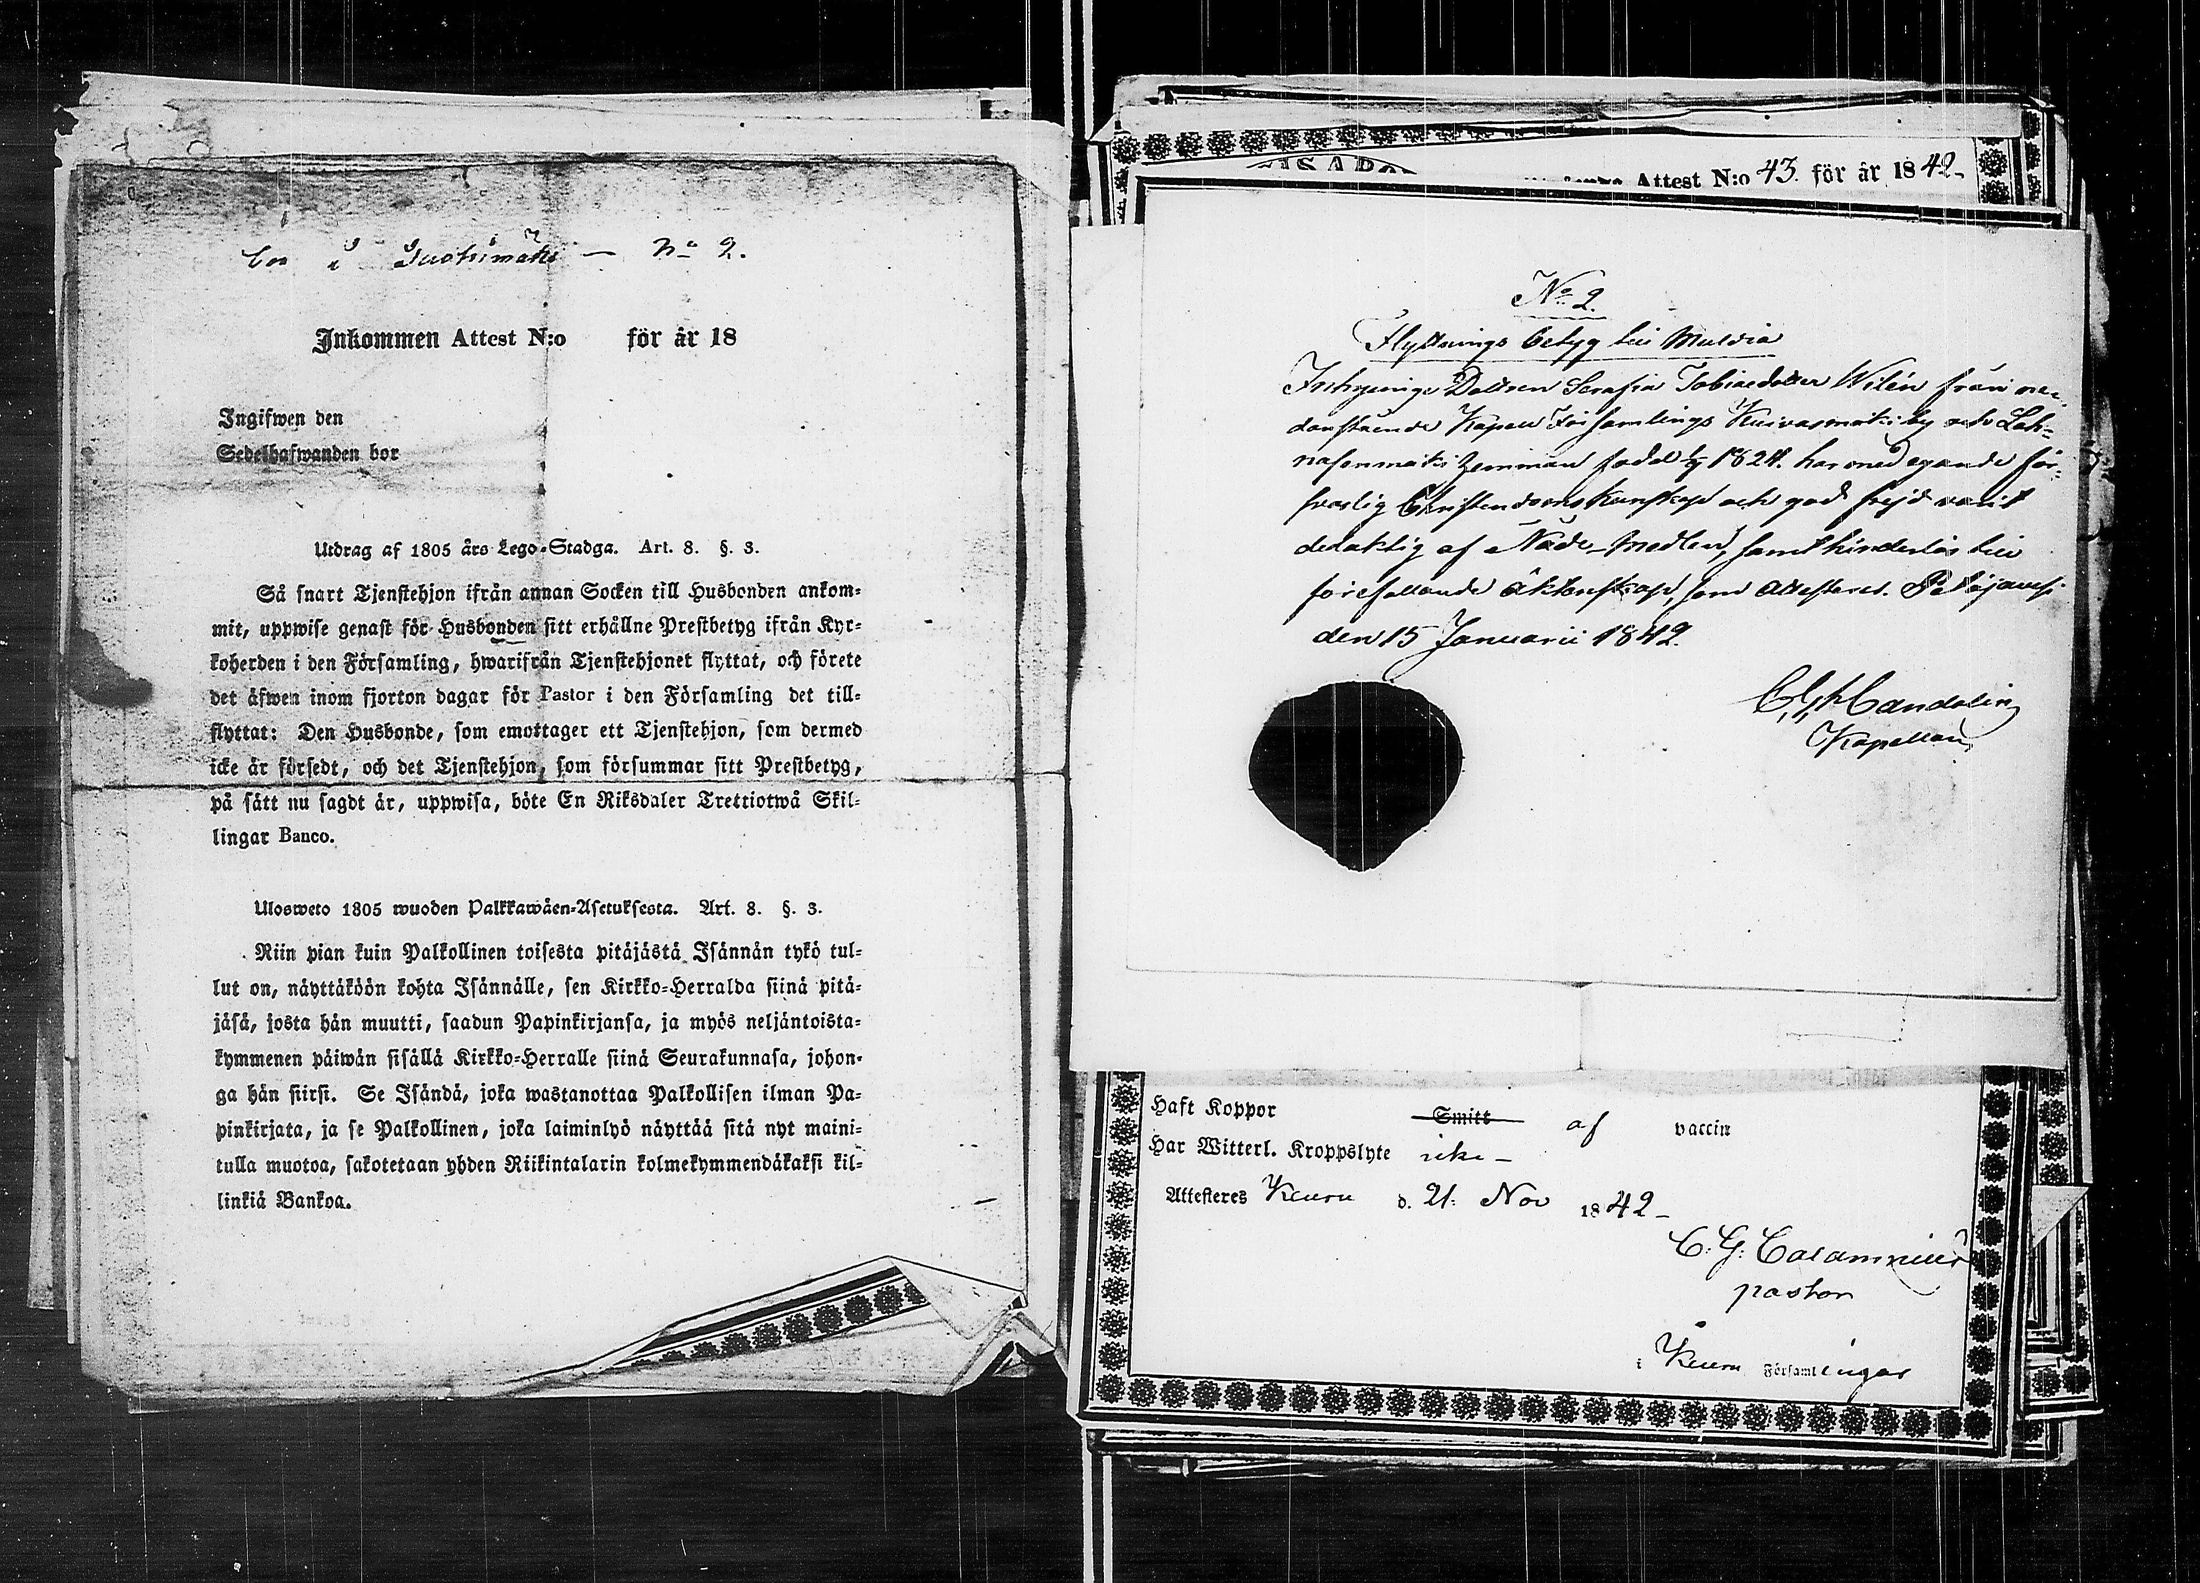 i Suotsmäki — No 2.
Inkommen Attest N:o för år 18
Ingifwen den
Sedelhafwanden bor
Utdrag af 1805 års Lego-Stadga. Art. 8. §. 3.
Så snart Tjenstehjon ifrån annan Socken till Husbonden ankom-
mit, uppwise genast för Husbonden sitt erhållne Prestbetyg ifrån Kyr-
koherden i den Församling, hwarifrån Tjenstehjonet flyttat, och förete
det äfwen inom fjorton dagar för Pastor i den Församling det till-
flyttat: Den Husbonde, som emottager ett Tjenstehjon, som dermed
icke är försedt, och det Tjenstehjon, som försummar sitt Prestbetyg,
på sätt nu sagdt är, uppwisa, böte En Riksdaler Trettiotwå Skil-
lingar Banco.
Ulosweto 1805 wuoden Palkkawäen-Asetuksesta. Art. 8. §. 3.
Niin pian kuin Palkollinen toisesta pitäjästä Isännän tykö tul-
lut on, näyttäköön kohta Isännälle, sen Kirkko-Herralda siinä pitä-
jäsä, josta hän muutti, saadun Papinkirjansa, ja myös neljäntoista-
kymmenen päiwän sisällä Kirkko-Herralle siinä Seurakunnasa, johon-
ga hän siirsi. Se Isändä, joka wastanottaa Palkollisen ilman Pa-
pinkirjata, ja se Palkollinen, joka laiminlyö näyttää sitä nyt maini-
tulla muotoa, sakotetaan yhden Riikintalarin kolmekymmendäkaksi kil-
linkiä Bankoa.
Attest N:o 43. för år 1842
No 2.
Flyttnings betyg till Multia
Inhysinge Dottren Serafia Tobiaedotter Wilén från ne-
danstående Kapell Församlings Kuivasmäki by och Lah-
nasenmäki hemman född 1824. har med egande för-
svarlig Christendoms Kunskap och god frejd varit
delaktig af Nåde-Medlen, samt hinderlös till
förefallande äktenskap, som attesteras. Petäjävesi
den 15 Januarii 1842.
Candolin
Kapellan
Haft Koppor Smitt af vaccin
Har Witterl. Kroppslyte icke —
Attesteres Keuru d. 21: Nov 1842 —
C. G. Calamnius
pastor
i Keuru Församlingar